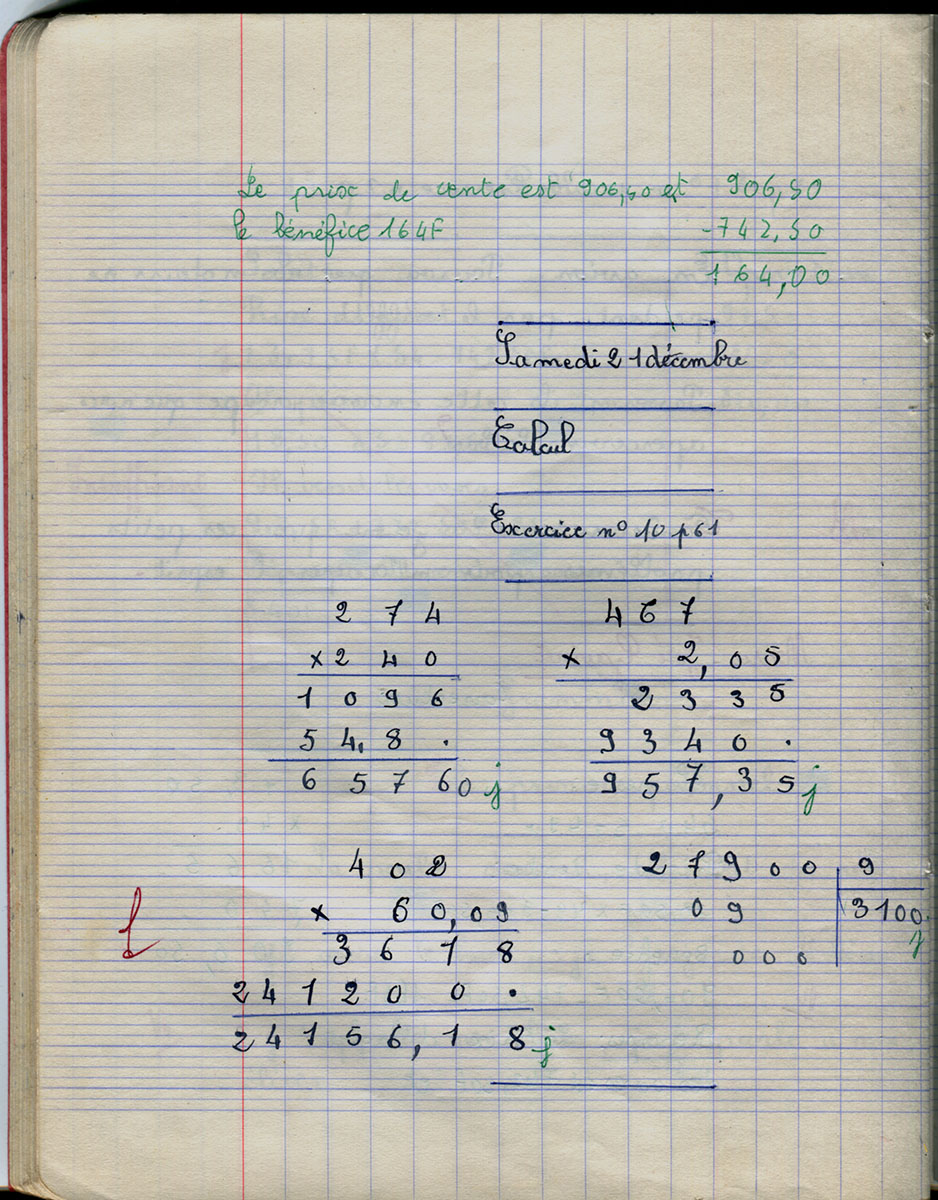 Le prix de vente est 906,50 et 906,50
le bénéfice 164F -742,50
164,00
Samedi 21 décembre
Calcul
Exercice n° 10 p61
2 7 4
x 2 4 0
1 0 9 6
5 4, 8 .
6 5 7 6 0 j
4 6 7
x 2, 0 5
2 3 3 5
9 3 4 0 .
9 5 7, 3 5 j
4 0 2
x 6 0, 0 9
3 6 1 8
2 4 1 2 0 0 .
2 4 1 5 6, 1 8 j
2 7 9 0 0 9
0 9 3100
0 0 0 j